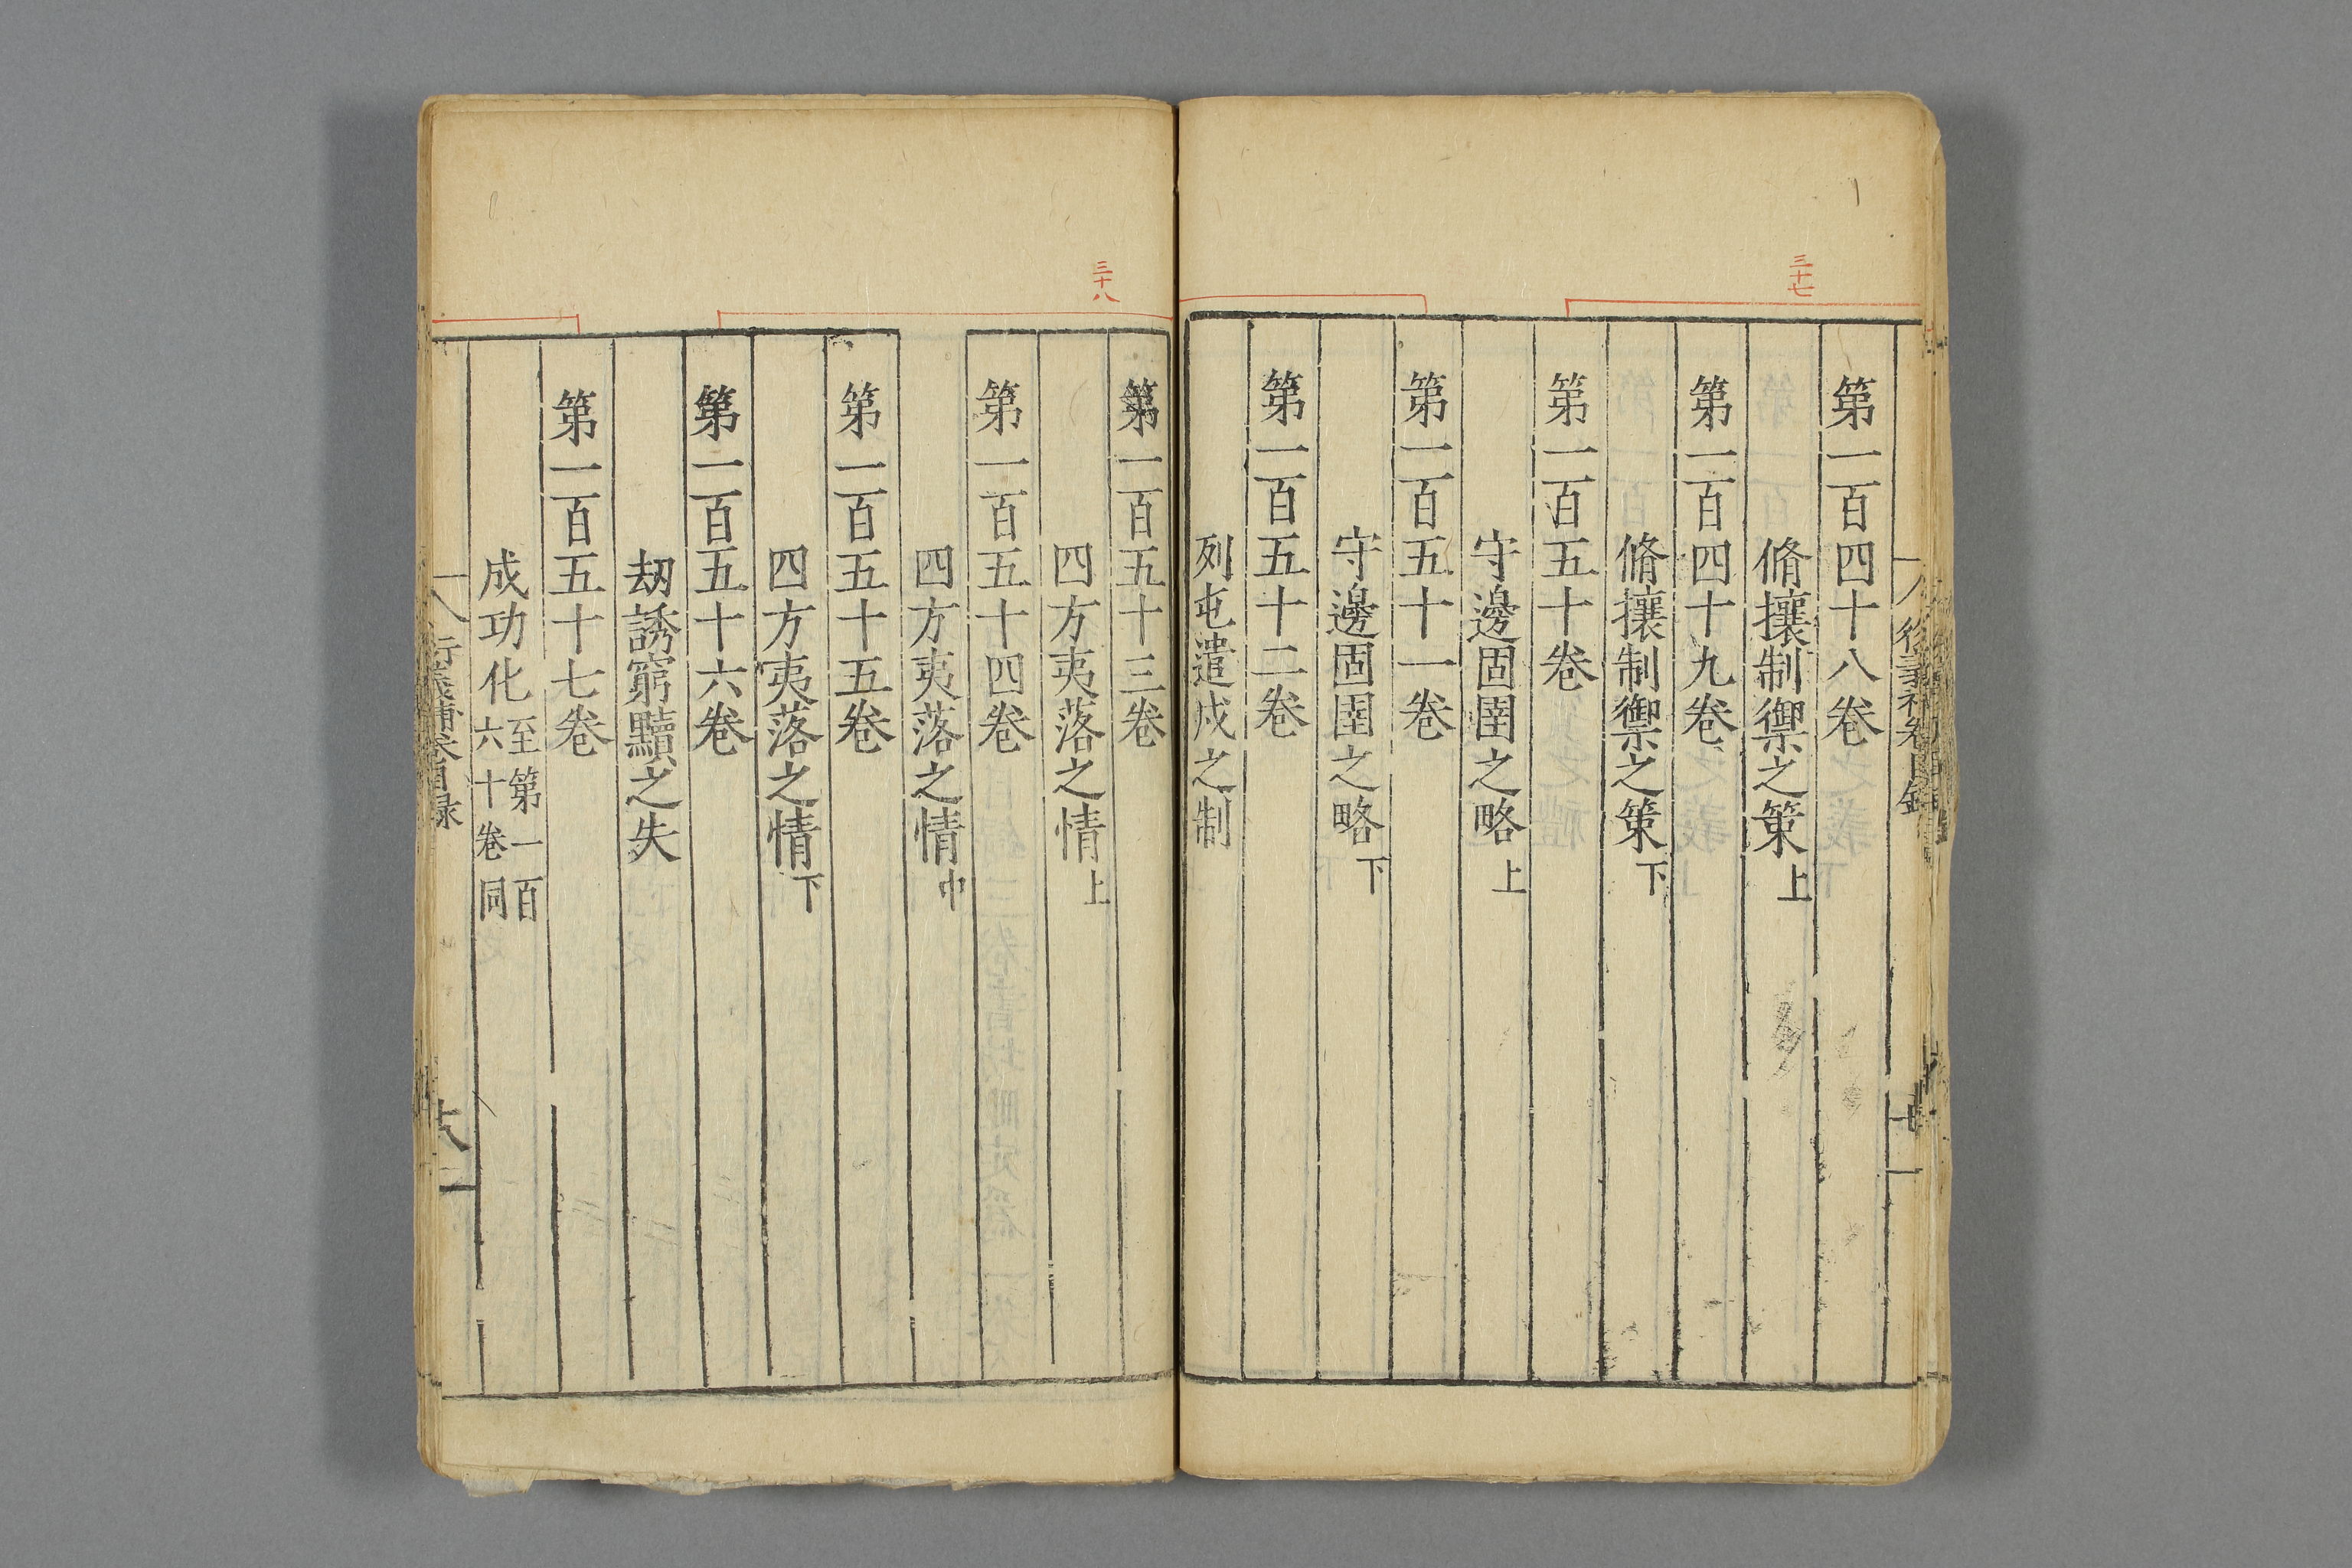 三十七
第一百四十八卷
脩攘制禦之策上
第一百四十九卷
脩攘制禦之策下
第一百五十卷
守邊固圉之略上
第一百五十一卷
守邊固圉之略下
第一百五十二卷
列屯遣戍之制
三十八
第一百五十三卷
四方夷落之情上
第一百五十四卷
四方夷落之情中
第一百五十五卷
四方夷落之情下
第一百五十六卷
刼誘窮黷之失
第一百五十七卷
成功化至第一百六十卷同